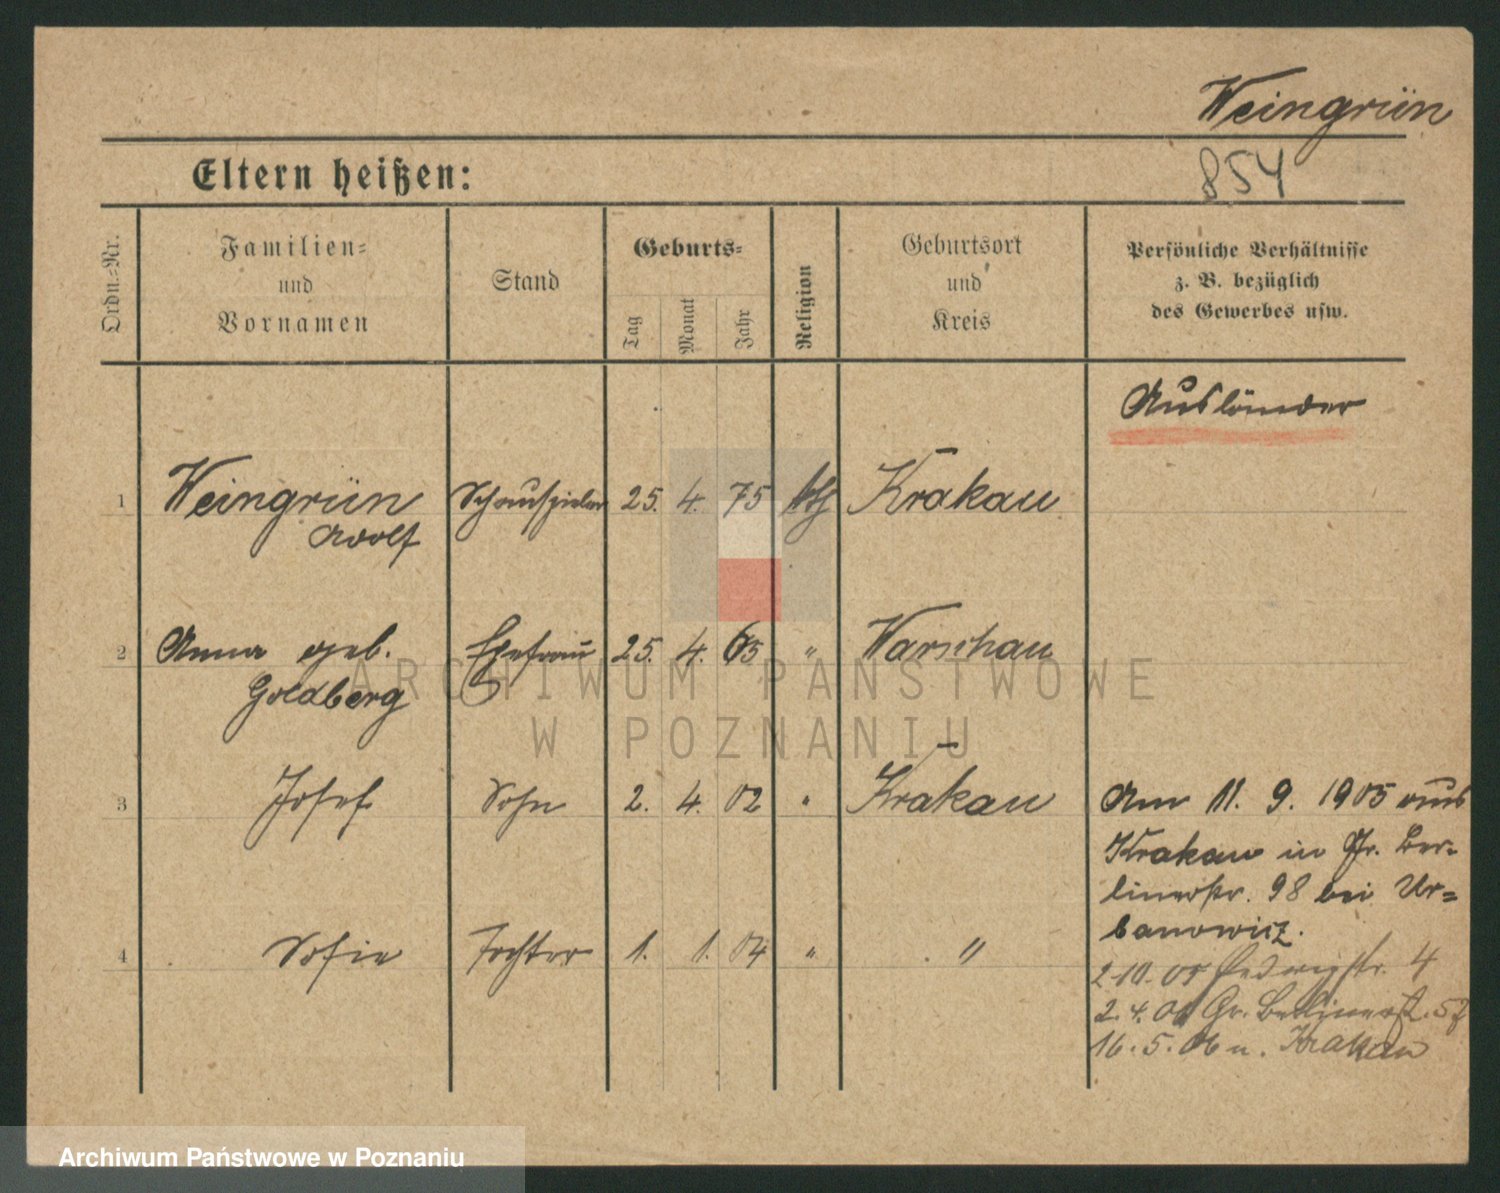 Weingrün
854
Eltern heißen:
Ordn.=Nr.
Familien=
und
Vornamen
Stand
Geburts=
Tag
Monat
Jahr
Religion
Geburtsort
und
Kreis
Persönliche Verhältnisse
z. B. bezüglich
des Gewerbes usw.
Ausländer
1 Weingrün Schauspieler 25. 4. 75 Krakau
Adolf
2 Anna geb. Ehefrau 25. 4. 65 " Warschau
Goldberg
3 Josef Sohn 2. 4. 02 " Krakau
Am 11. 9. 1905 aus
Krakau in Gr. Ber-
linerstr. 98 bei Ur=
banowicz.
4 Sofie Tochter 1. 1. 04 " "
2.10.05 Hedwigstr. 4
2.4.06 Gr. Berlinerstr. 57
16.5.06 n. Krakau
ARCHIWUM PAŃSTWOWE
W POZNANIU
Archiwum Państwowe w Poznaniu